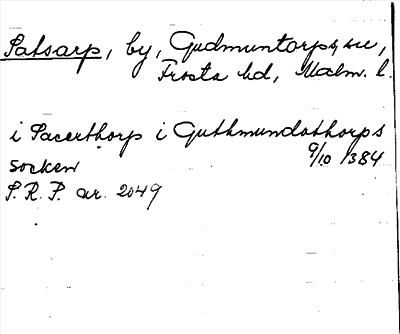 Satsarp, by, Gudmuntorps sn,
Frosta hd, Malm. l.
i Sacerthorp i Guthmundsthorps
socken 9/10 1384
S.R.P. nr. 2049